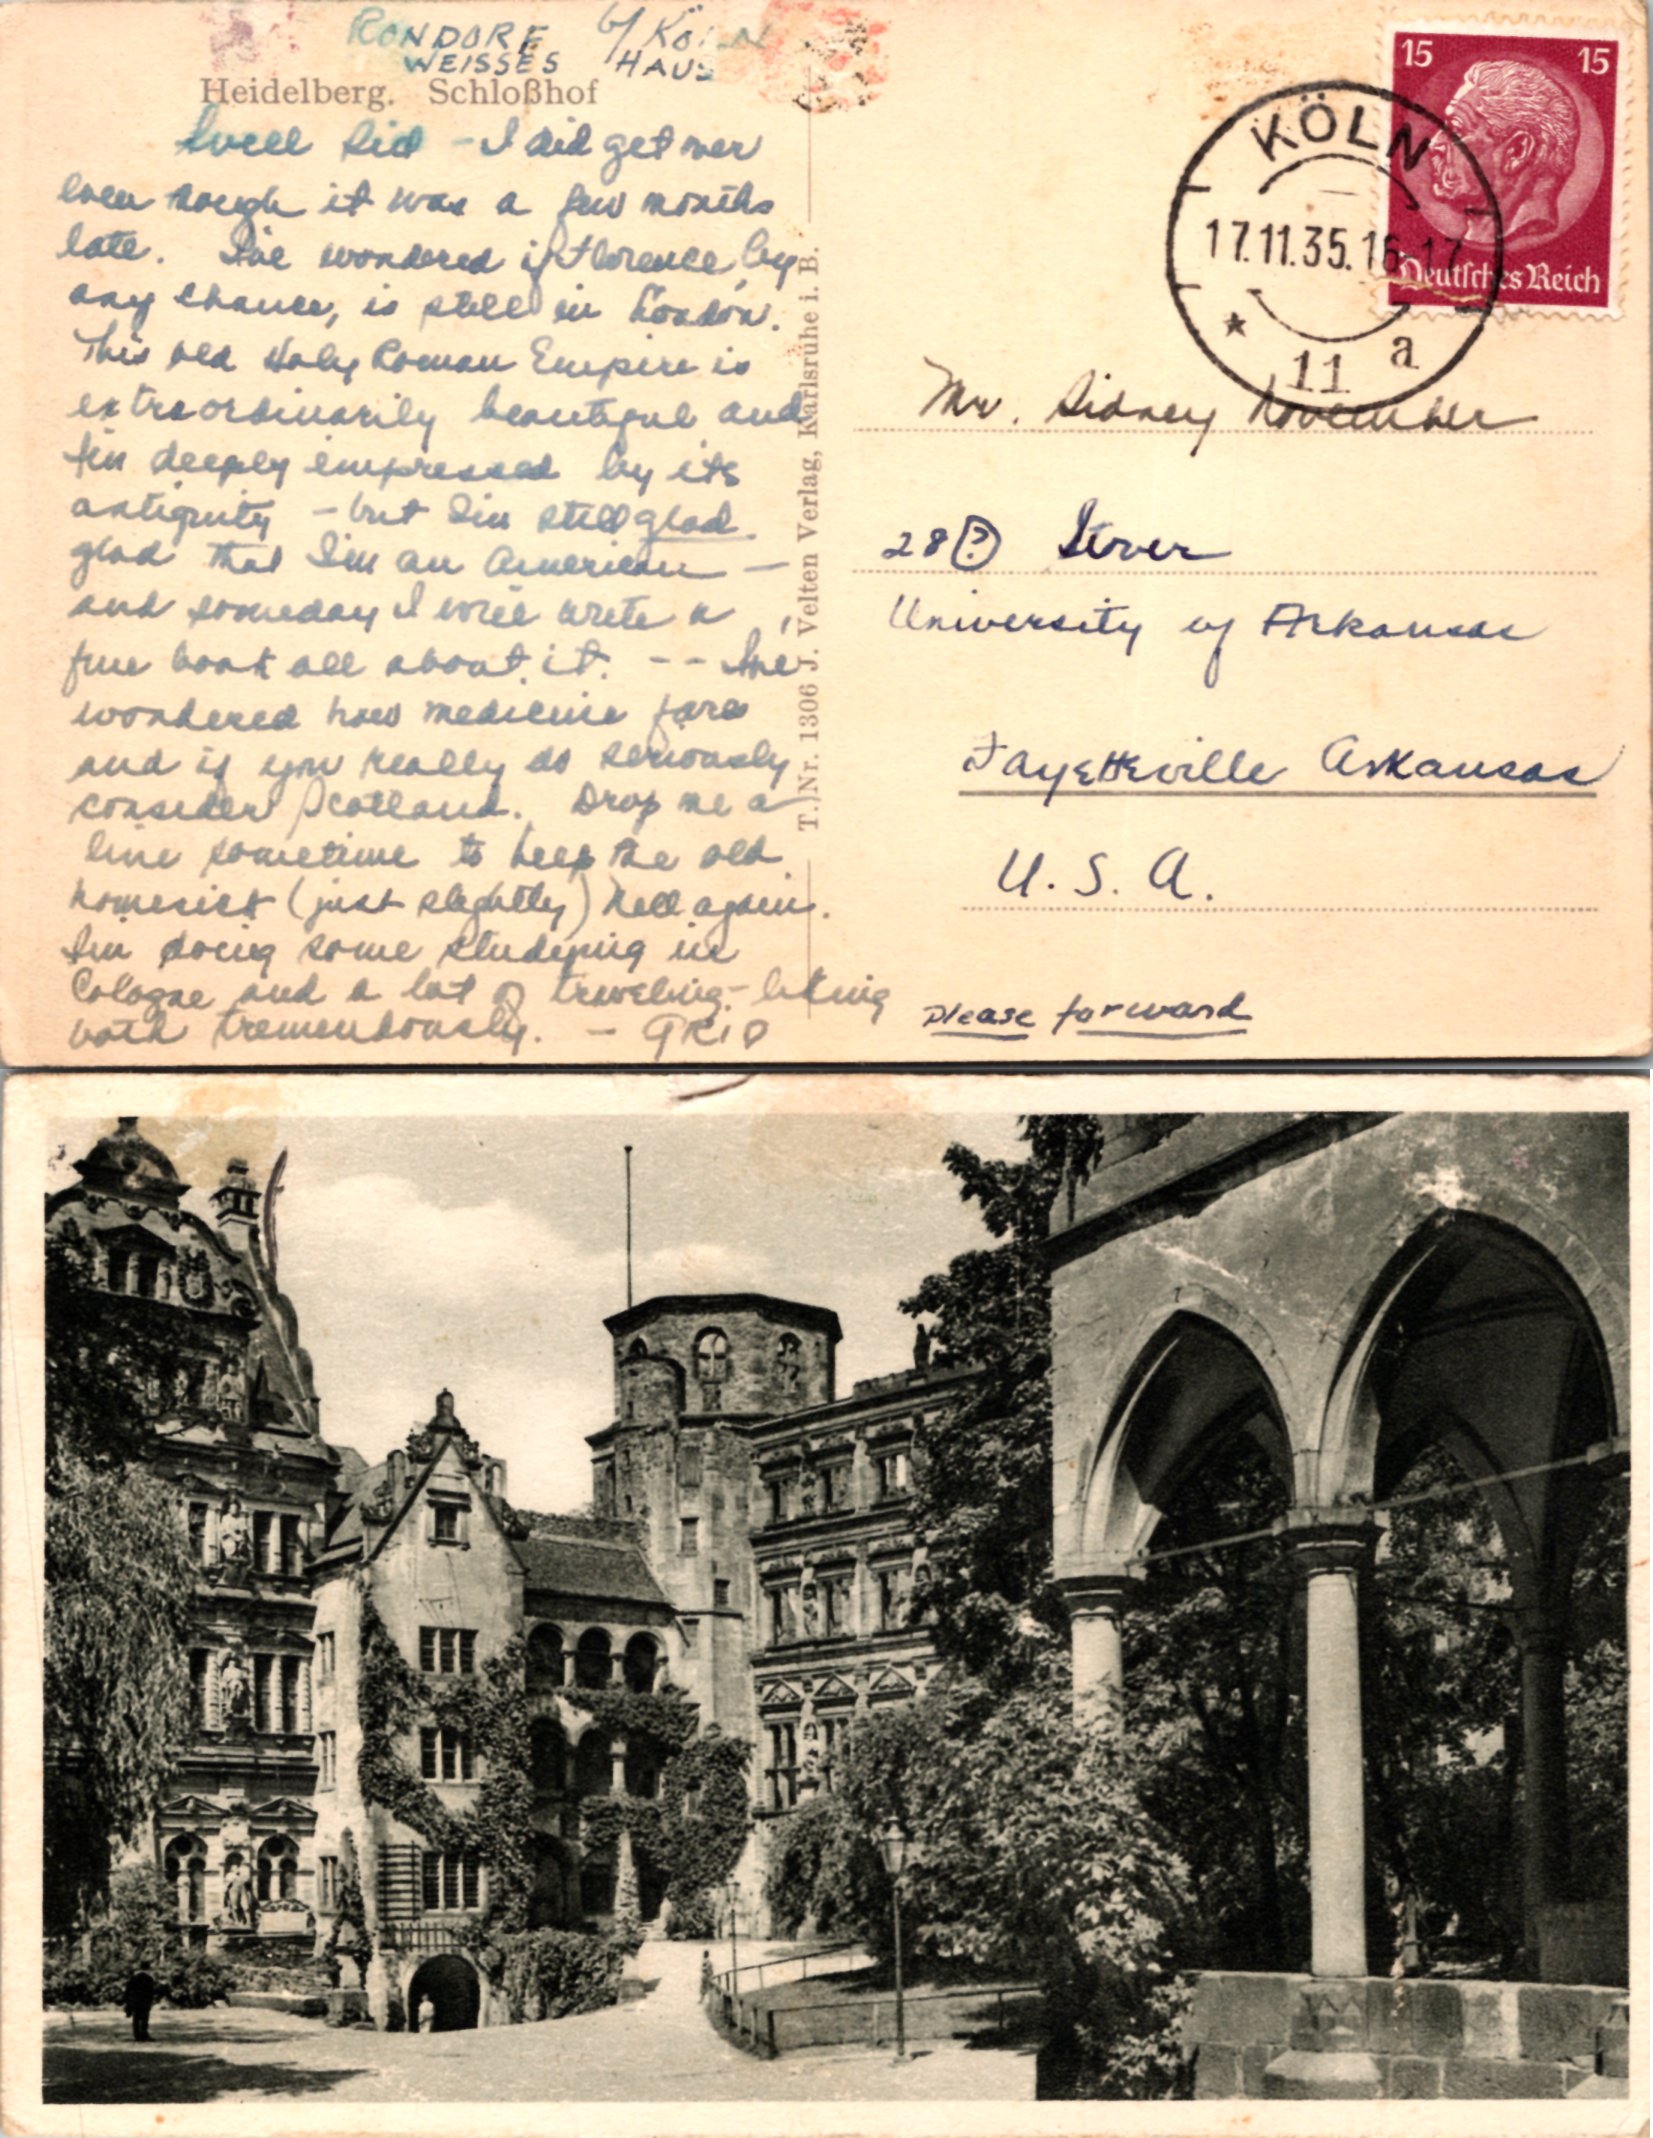 RONDORF b/ KÖLN
WEISSES HAUS
Heidelberg. Schloßhof
Well Sid - I did get over
even though it was a few months
late. I've wondered if Florence, by
any chance, is still in London.
This old Holy Roman Empire is
extraordinarily beautiful and
I'm deeply impressed by its
antiquity - but I'm still glad
glad that I'm an American -
and someday I will write a
fine book all about it. -- I've
wondered how medicine fares
and if you really do seriously
consider Scotland. Drop me a
line sometime to keep the old
homesick (just slightly) hell again.
I'm doing some studying in
Cologne and a lot of traveling - liking
both tremendously. -
T. Nr. 1306 J. Velten Verlag, Karlsruhe i. B.
15 15
Deutsches Reich
KÖLN
17.11.35.16-17
* 11 a
Mr. Sidney November
28(?) Stover
University of Arkansas
Fayetteville Arkansas
U. S. A.
Please forward